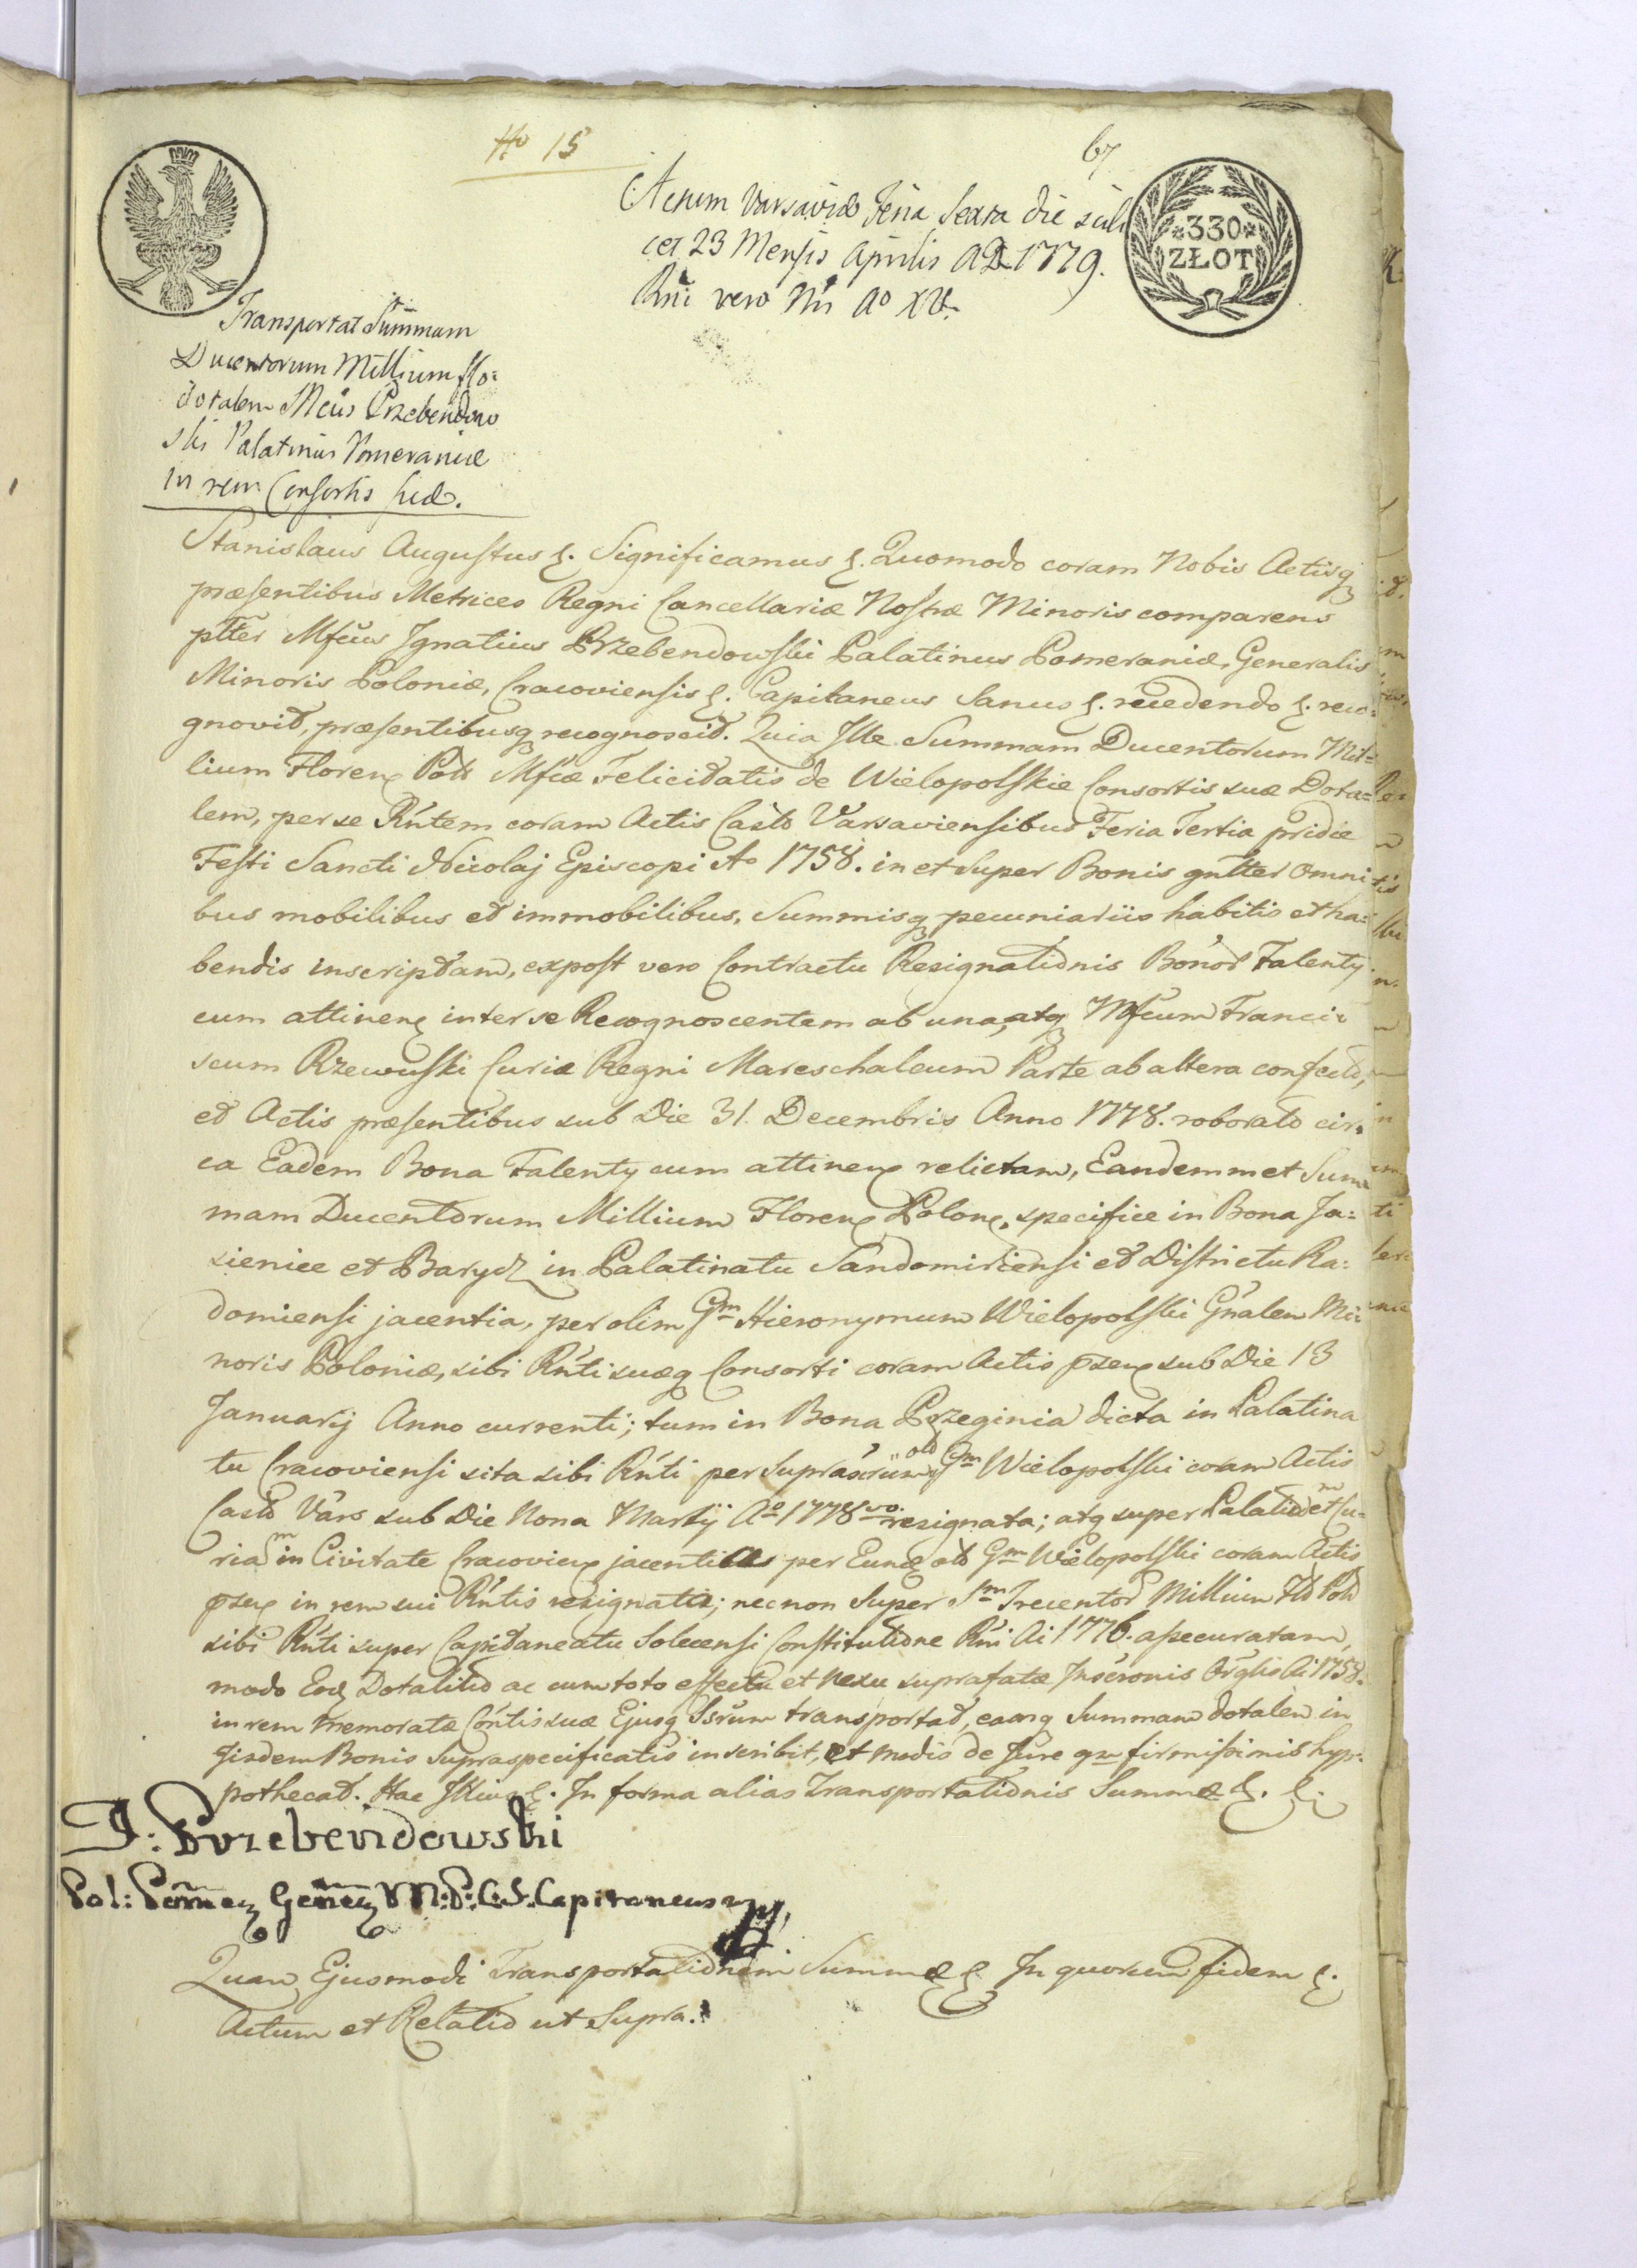 No 15
67
Actum Varsaviæ Feria Sexta die scili
cet 23 Mensis Aprilis AD 1779.
Rni vero Nri Ao XV.
330
ZŁOT
Transportat Summam
Ducentorum Millium flo:
dotalem Mcus Przebendow
ski Palatinus Pomeraniæ
in rem Consortis suæ.
Stanislaus Augustus &. Significamus &. Quomodo coram Nobis Actisq
præsentibus Metrices Regni Cancellariæ Nostræ Minoris comparens
pltter Mfcus Ignatius Przebendowski Palatinus Pomeraniæ, Generalis
Minoris Poloniæ, Cracoviensis &. Capitaneus Sanus &. recedendo &. reco:
gnovit, præsentibusq recognoscit. Quia Ille Summam Ducentorum Mil=
lium Floren Poll Mfcæ Felicitatis de Wielopolskie Consortis suæ Dota=
lem, per se Rntem coram Actis Castr Varsaviensibus Feria Tertia pridie
Festi Sancti Nicolaj Episcopi Ao 1758. in et Super Bonis gnlter omni
bus mobilibus et immobilibus, Summisq pecuniariis habitis et ha=
bendis inscriptam, expost vero Contractu Resignationis Bonor Falenty
cum attinen inter se Recognoscentem ab una, atq Mfcum Franci:
scum Rzewuski Curiæ Regni Mareschalcum Parte ab altera confecto,
et Actis præsentibus sub Die 31. Decembris Anno 1778. roborato cir:
ca Eadem Bona Falenty cum attinen relictam, Eandemmet Sum
mam Ducentorum Millium Floren Polon, specifice in Bona Ja=
sienice et Barycz in Palatinatu Sandomiriensi et Districtu Ra:
domiensi jacentia, per olim Gm Hieronymum Wielopolski Gnalem Mi:
noris Poloniæ, sibi Rnti suæq Consorti coram Actis præn sub Die 13
Januarij Anno currenti; tum in Bona Przeginia dicta in Palatina
tu Cracoviensi sita sibi Rnti per Suprascrium ol Gm Wielopolski coram Actis
Castr Vars sub Die Nona Martij Ao 1778vo resignata; atq super Palatium et Cu=
riam in Civitate Cracovien jacentia per Eund ol Gm Wielopolski coram Actis
præn in rem sui Rntis resignata; necnon Super Sm Trecentor Millium Fl Pol
sibi Rnti super Capitaneatu Solecensi Constitutione Rni Ai 1776. assecuratam,
modo Eod Dotalitio ac cum toto effectu et nexu suprafatæ Inscronis Orglis Ai 1758.
in rem memoratæ Contis suæ Ejusq Ssrum transportat, eamq Summam dotalem in
Iisdem Bonis Supraspecificatis inscribit, et modis de Jure qm firmissimis hyp:
pothecat. Hac Illius &. In forma alias Transportationis Summæ &. &.
I: Przebendowski
Pal: Pomer Gener M:P:C:S: Capitaneus
Quam Ejusmodi Transportationem Summæ &. In quorum fidem &.
Actum et Relatio ut Supra.